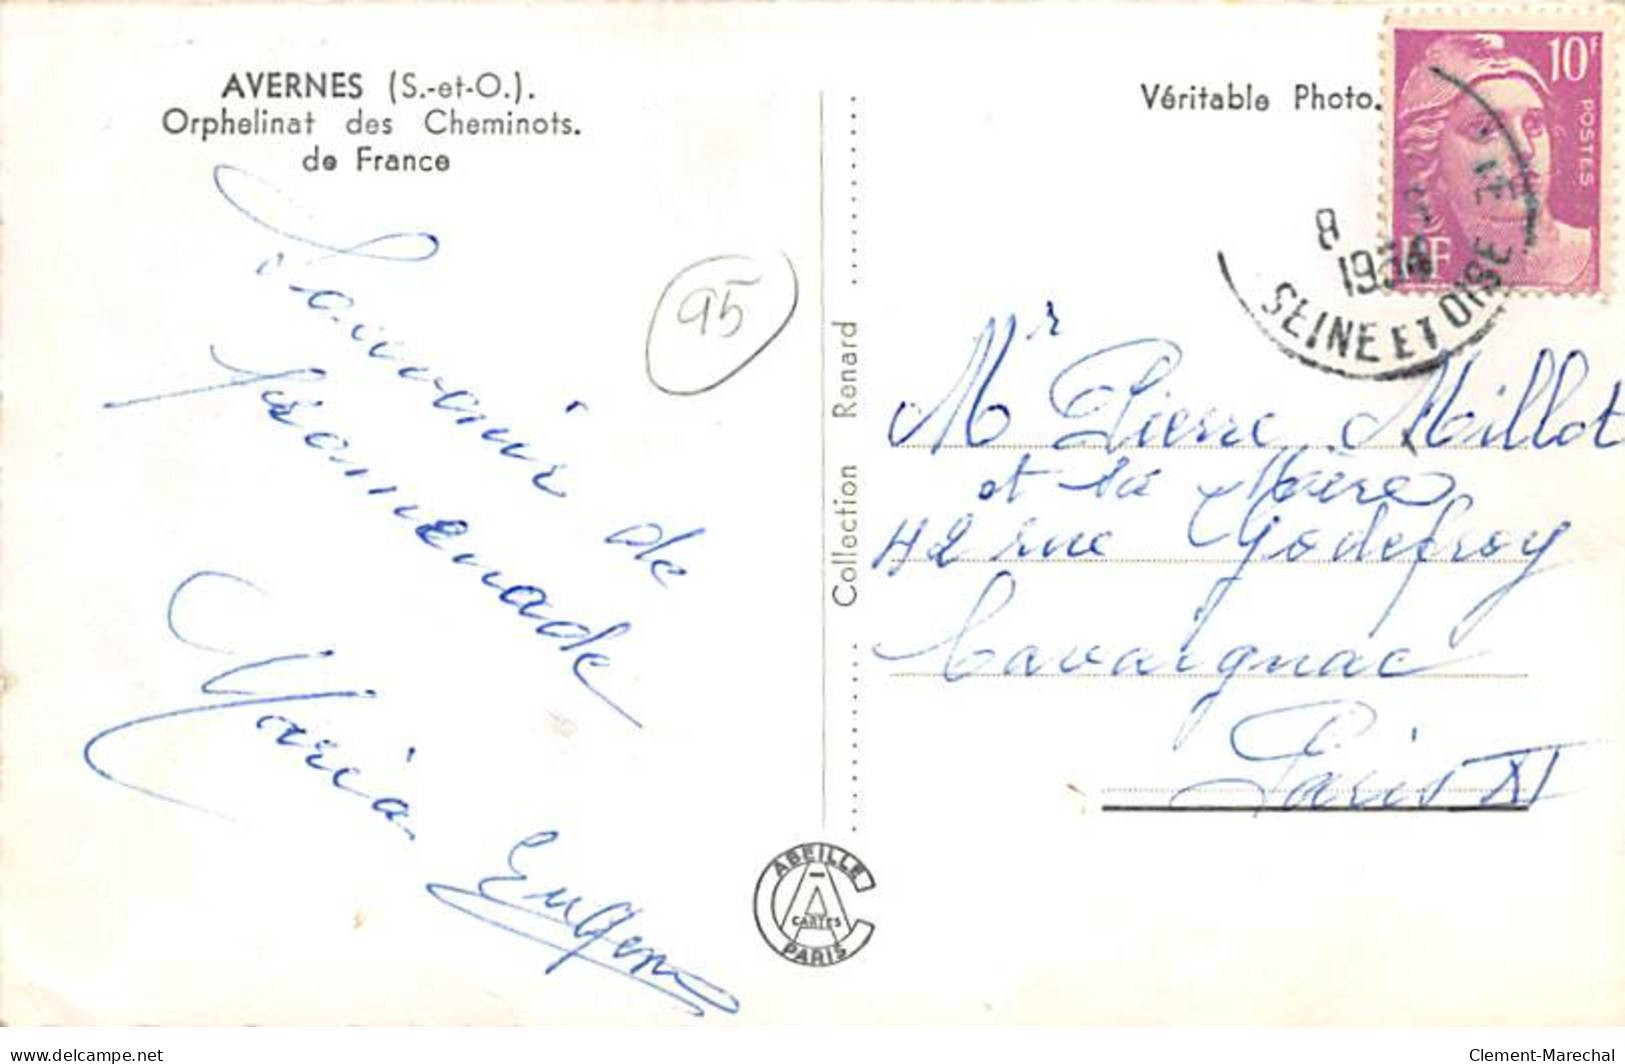 AVERNES (S.-et-O.).
Orphelinat des Cheminots.
de France
Véritable Photo.
10F
POSTES
RF
8
1954
SEINE ET OISE
95
Souvenir de
promenade
Maria
Eugene
Collection Renard
Mr
Mr Pierre Millot
et sa Mère
42 rue Godefroy
Cavaignac
Paris XI
ABEILLE
CARTES
PARIS
delcampe.net
Clement-Marechal